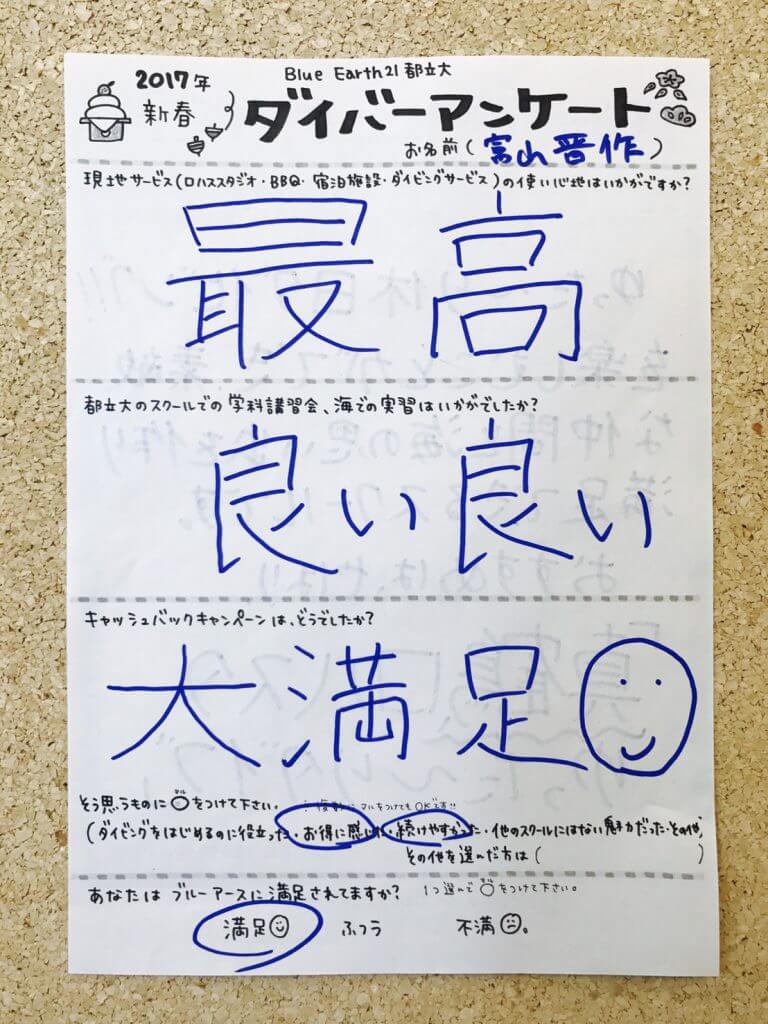 Blue Earth21 都立大
2017年
新春
ダイバーアンケート
お名前(富山晋作)
現地サービス(ロハススタジオ・BBQ・宿泊施設・ダイビングサービス)の使い心地はいかがですか?
最高
都立大のスクールでの学科講習会、海での実習はいかがでしたか?
良い良い
キャッシュバックキャンペーンは、どうでしたか?
大満足
そう思うものに○をつけて下さい。 ※複数にマルをつけてもOKです!!
(ダイビングをはじめるのに役立った・お得に感じた・続けやすかった・他のスクールにはない魅力だった・その他)
その他を選んだ方は( )
あなたはブルーアースに満足されてますか? 1つ選んで○をつけて下さい。
満足 ふつう 不満 。